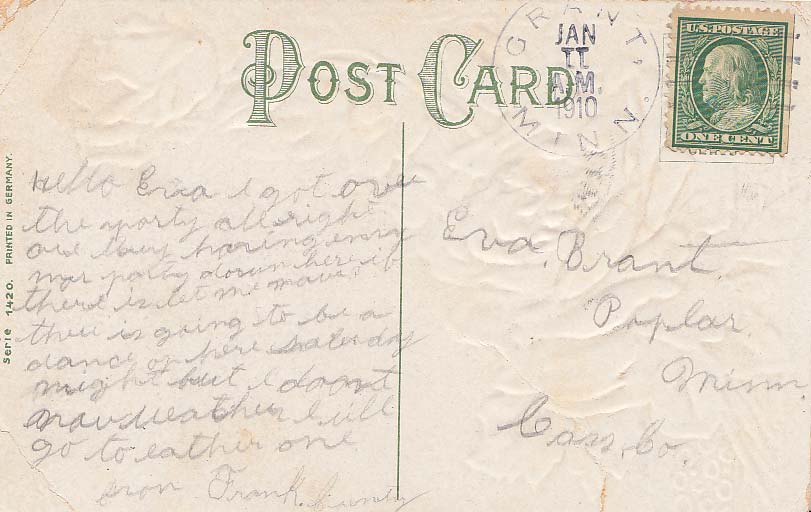 POST CARD
GRANT, MINN.
JAN
11
A.M.
1910
U.S. POSTAGE
ONE CENT
Serie 1420. PRINTED IN GERMANY.
Hello Eva I got over
the party allright
are having enny
mor party down here if
there is let me
there is going to be a
dance up here saterday
night but I doant
I will
go to eather one
from Frank
Eva. Brant.
Poplar.
Minn.
Cass. Co.